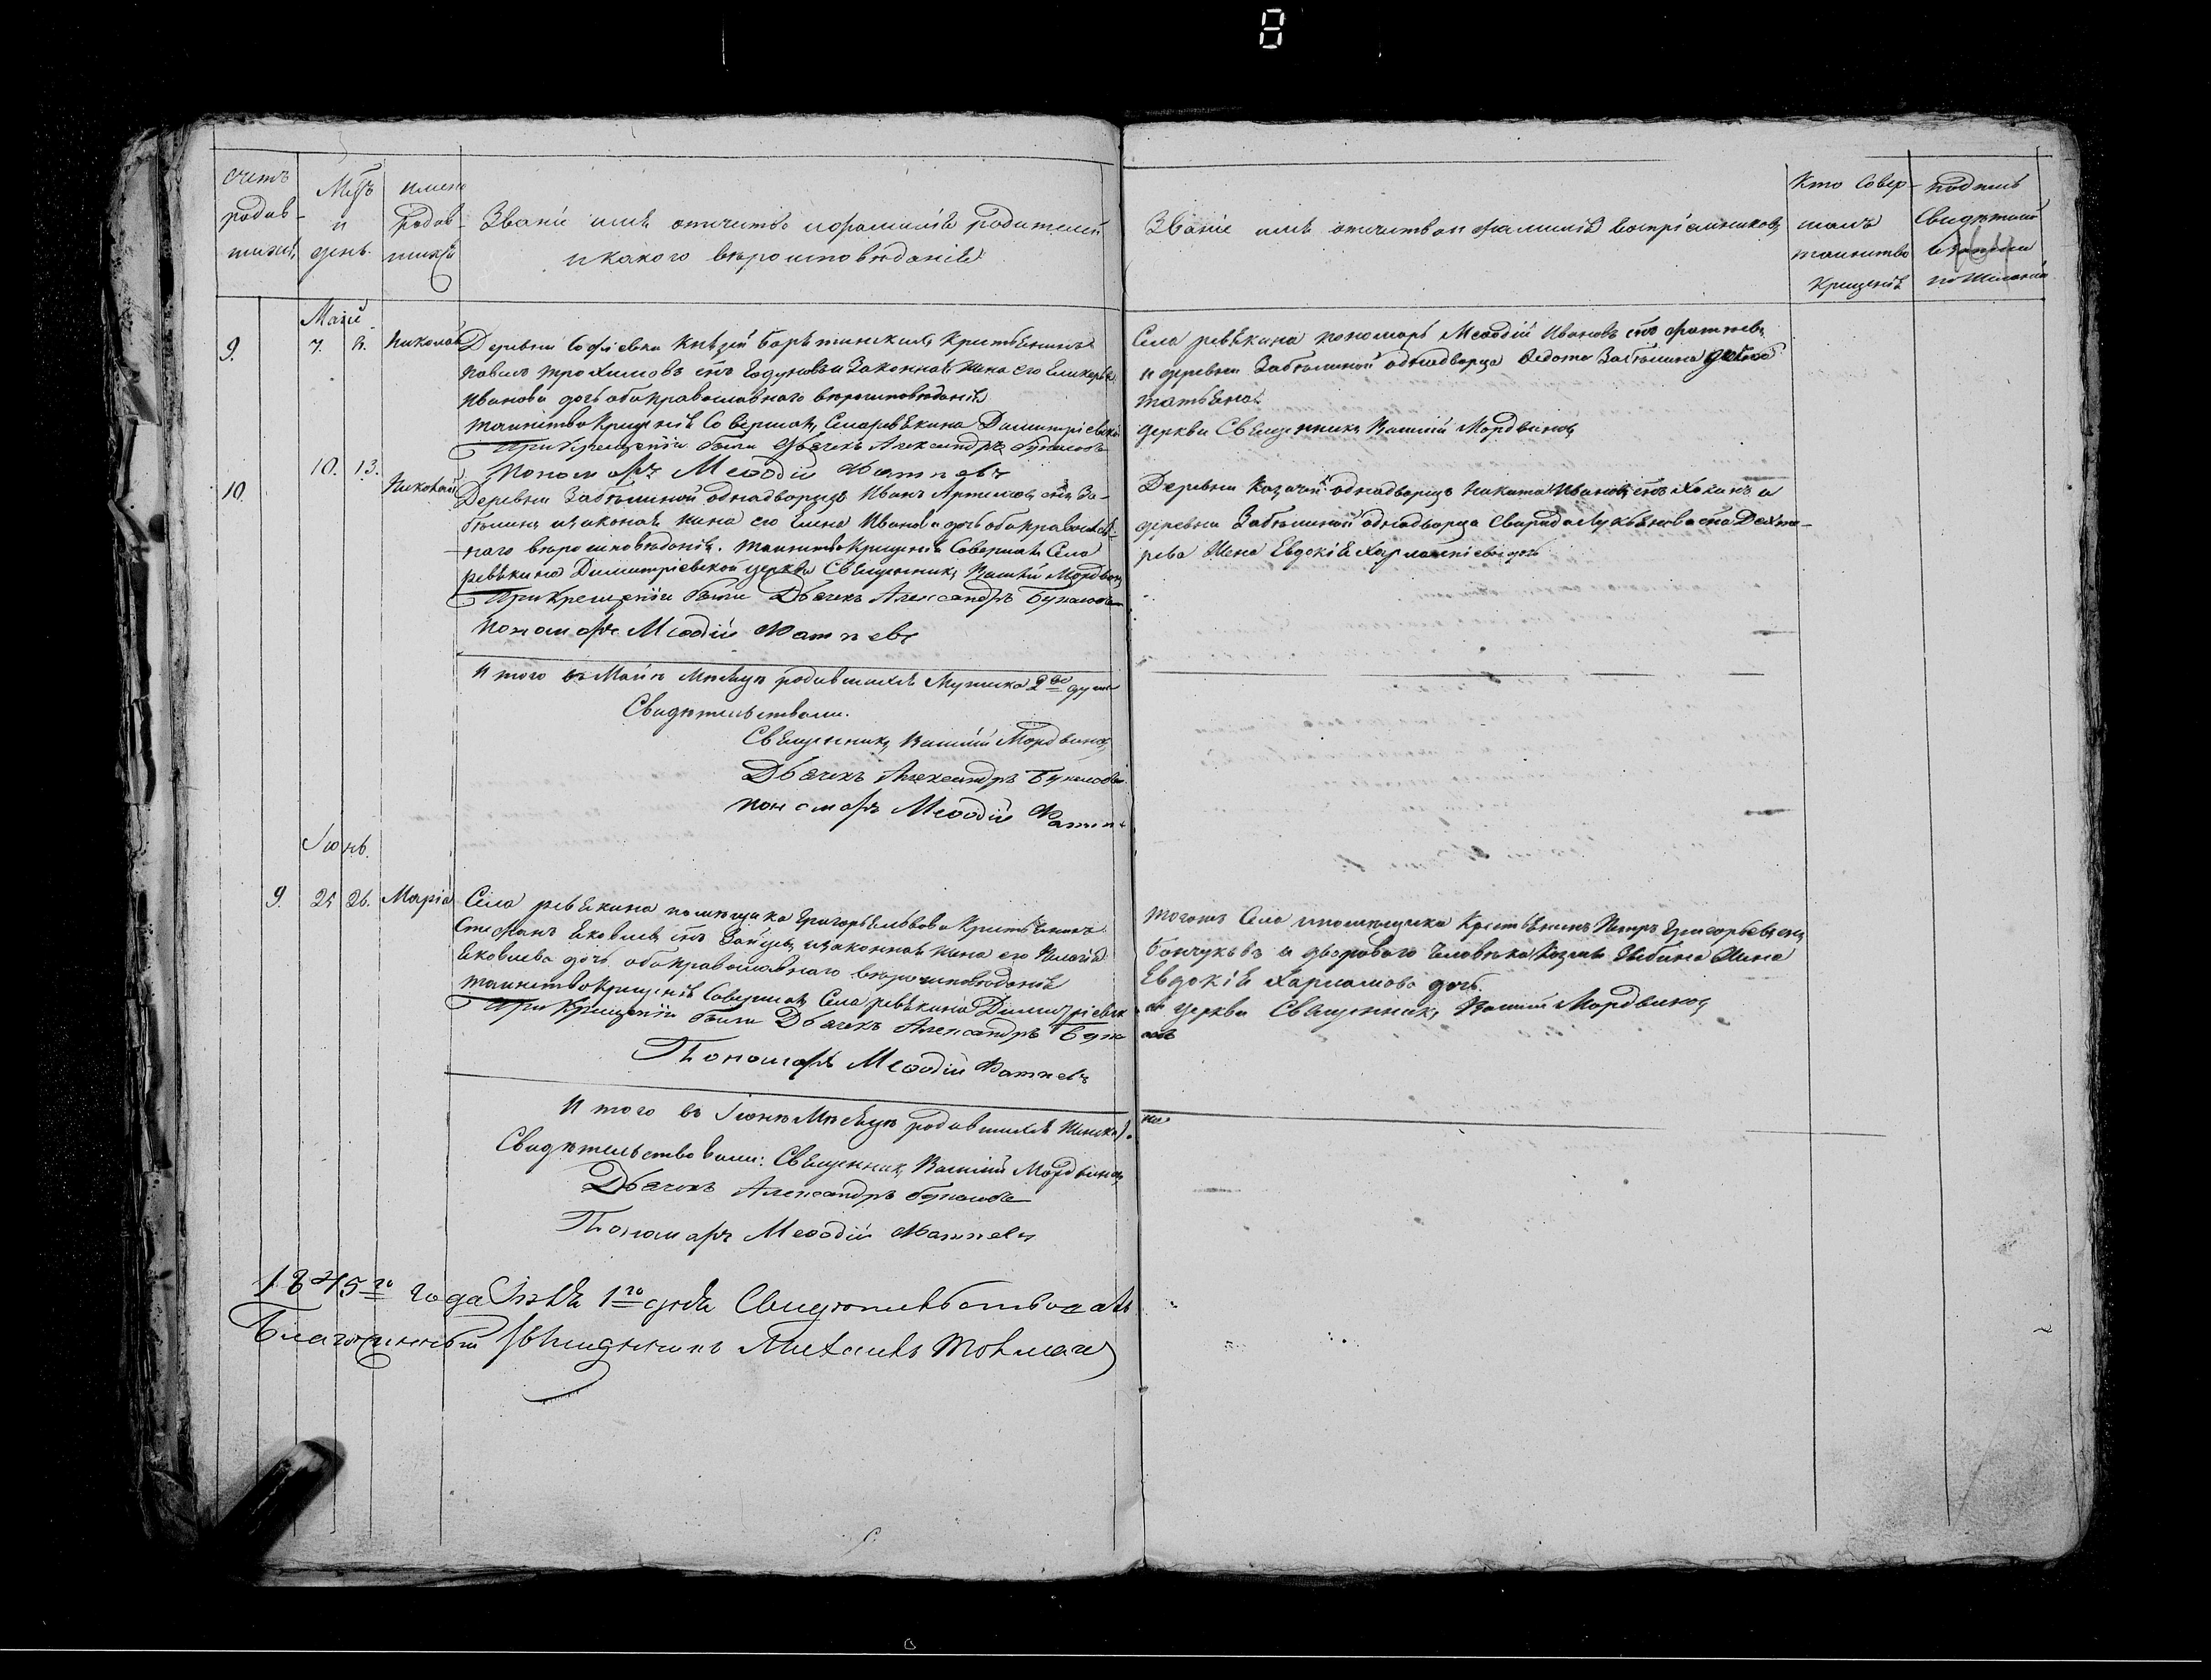 счетъ родив-шихся
Мѣсъ и день
имена родив-шихся
Званіе имя отчество и фамилія родителей
и какого вѣроисповѣданія
Званіе имя отчество и фамилія воспріемниковъ
Кто совер-шалъ таинство крещенія
подпись свидѣтелей
по желанію
Маій
9. 7. 8. Николай
Деревни Софіевки Князей Барятинскихъ Крестьянинъ
Павелъ Трофимовъ сынъ Годуновъ и законная жена его Гликерья
Иванова дочь оба православнаго вѣроисповѣданія
Таинство Крещенія Совершалъ Села ревякина Димитріевской
При Крещеніи были Дьячекъ Александръ
Пономарь Меѳодій
Села ревякина пономарь Меѳодій Ивановъ сынъ
и деревни Забѣлиной однодворца Ѳедота Забѣлина дочь
татьяна
церкви Священникъ Василій Мордвиновъ
10. 10. 13. Николай
Деревни Забѣлиной однодворецъ Иванъ Артемовъ сынъ За-
бѣлинъ и законая жена его Елена Иванова дочь оба православ-
наго вѣроисповѣданія. Таинство Крещенія Совершалъ Села
ревякина Димитріевской церкви Священникъ Василій Мордвиновъ
При Крещеніи были Дьячекъ Александръ
Пономарь Меѳодій
Деревни Казачей однодворецъ Никита Ивановъ сынъ
деревни Забѣлиной однодворца Свирида Лукьянова сына Дехте-
рева Жена Евдокія Харлампіева дочь
Итого въ Маіи Мѣсяцѣ родившихся Мужеска 2 душ
Свидѣтельствовали.
Священникъ Василій Мордвиновъ
Дьячекъ Александръ
пономарь Меѳодій
Іюнь.
9. 25 26. Марія
Села ревякина помѣщика Григорья Львова Крестьянинъ
Стефанъ Яковлевъ сынъ Зайцевъ и законная жена его Пелагія
Яковлева дочь оба православнаго вѣроисповѣданія
таинство Крещенія Совершалъ Села ревякина Димитріевск
При Крещеніи были Дьячекъ Александръ
Пономарь Меѳодій
Тогожъ Села и помѣщика Крестьянинъ Петръ Григорьевъ сынъ
и двороваго человѣка Козмы Жена
Евдокія Харламова дочь.
ой церкви Священникъ Василій Мордвиновъ
Итого въ Іюнѣ Мѣсяцѣ родившихся Женска 1.
Свидѣтельствовали: Священникъ Василій Мордвиновъ
Дьячекъ Александръ
Пономарь Меѳодій
1845го года Іюля 1го дня Свидѣтельствовалъ
Благочинный Священникъ Михаилъ Толмачевъ